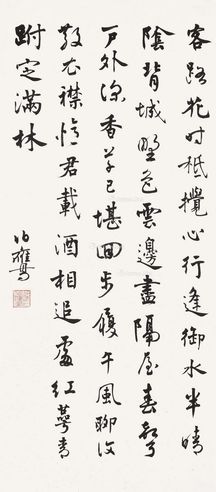 客路花時祇攪心行逢御水半晴
陰背城野色雲邊盡隔屋春聲
戶外深香草已堪回步履午風聊復
散衣襟憶君載酒相追處紅萼青
跗定滿林
伯鷹